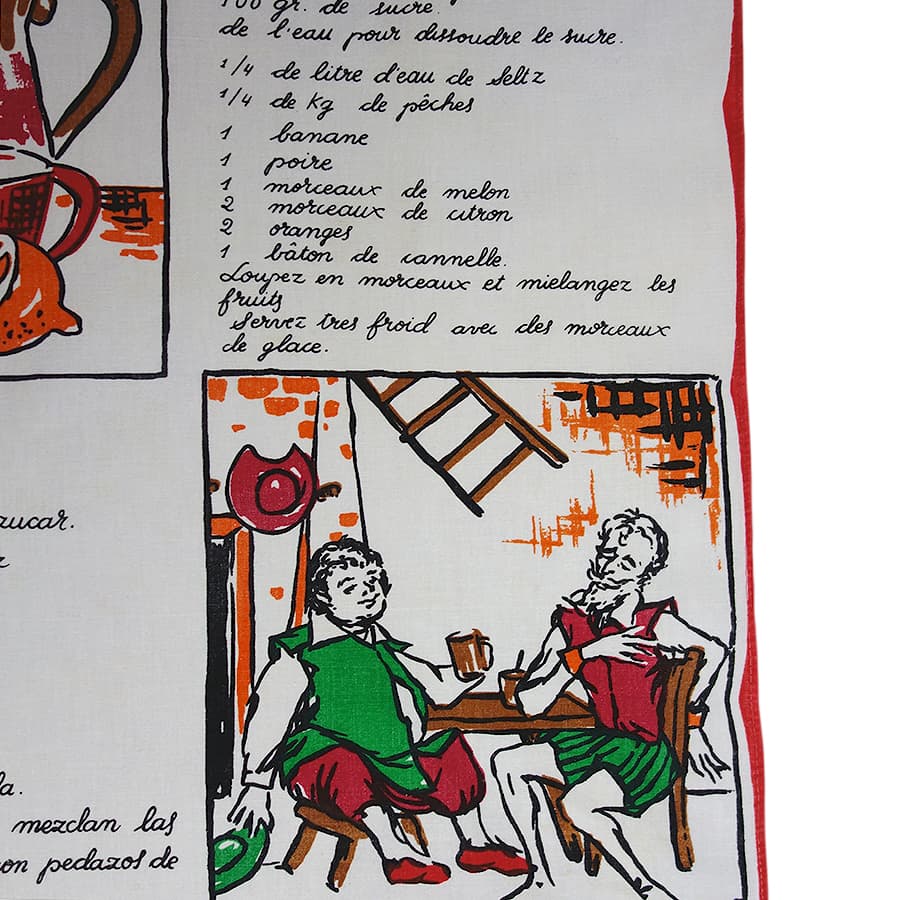 100 gr. de sucre.
de l'eau pour dissoudre le sucre.
1/4 de litre d'eau de Seltz
1/4 de kg de pêches
1 banane
1 poire
1 morceaux de melon
2 morceaux de citron
2 oranges
1 bâton de cannelle.
Coupez en morceaux et mielangez les
fruits
Servez tres froid avec des morceaux
de glace.
zucar.
la.
mezclan las
on pedazos de